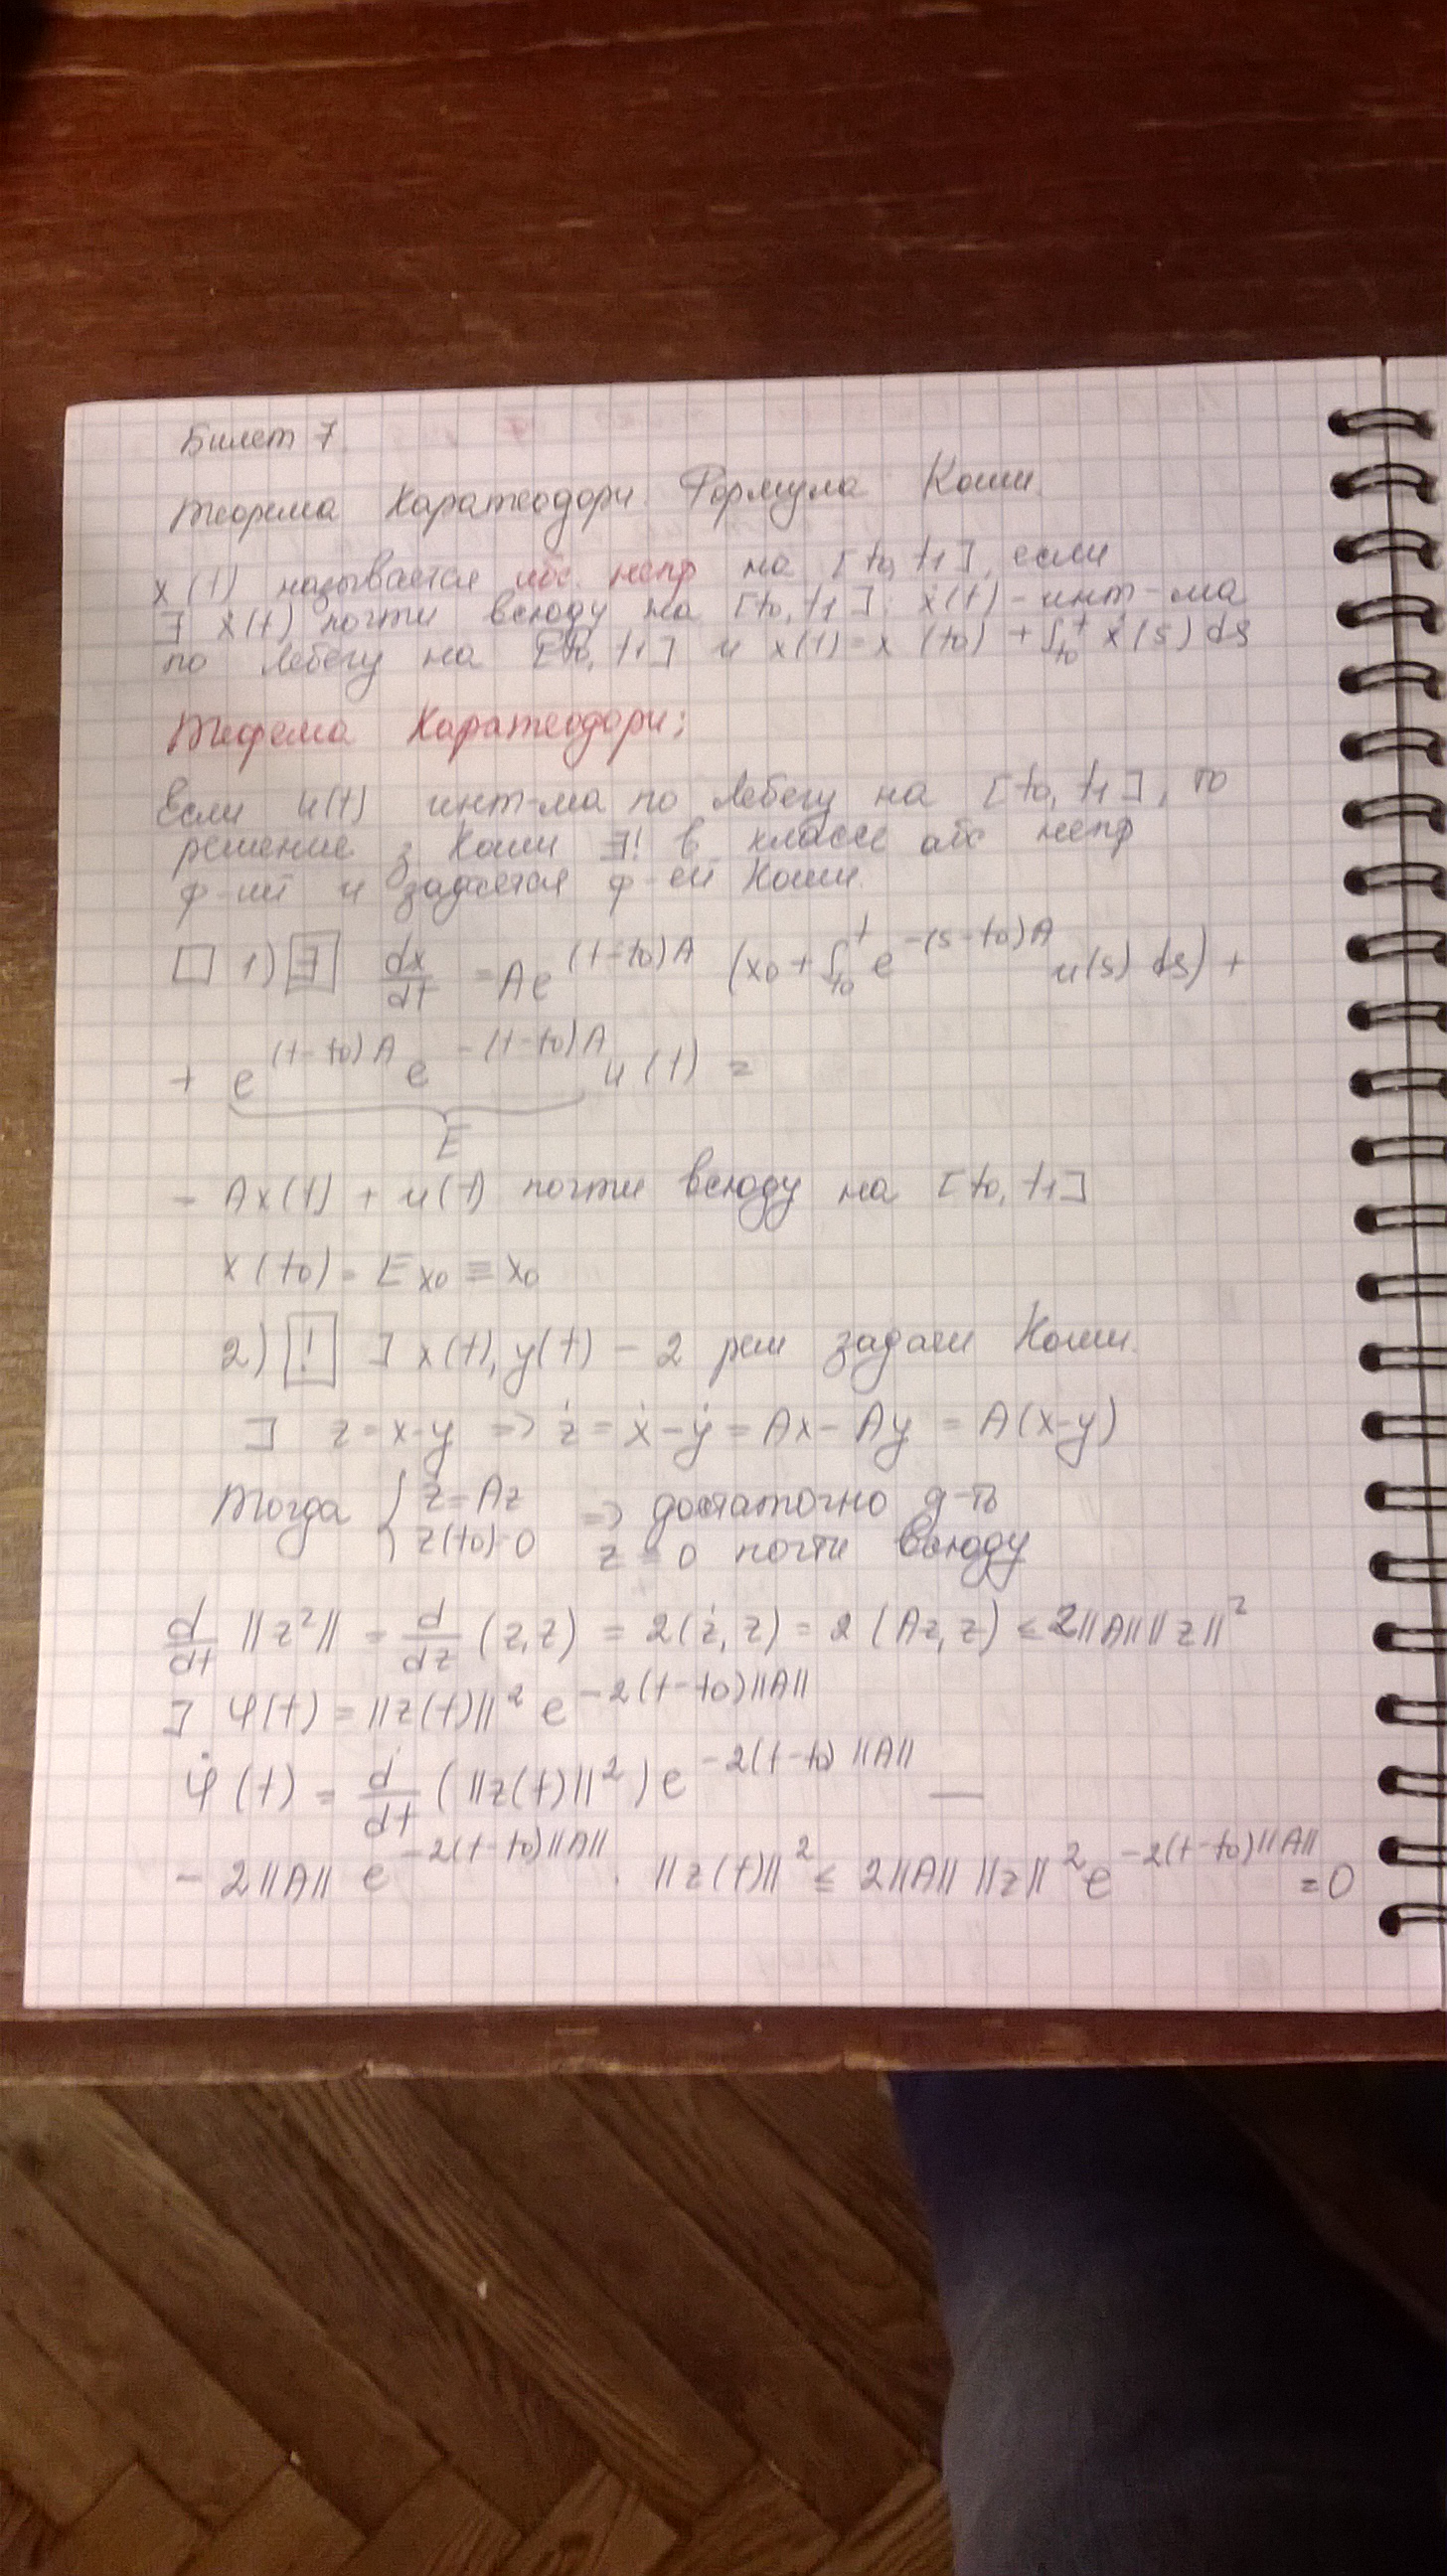 Билет 7.
Теорема Каратеодори. Формула Коши.
x(t) называется абс. непр на [t0, t1], если
∃ ẋ(t) почти всюду на [t0, t1]: ẋ(t) - инт-ма
по Лебегу на [t0, t1] и x(t) = x(t0) + ∫_{t0}^{t} ẋ(s) ds
Теорема Каратеодори:
Если u(t) инт-ма по Лебегу на [t0, t1], то
решение з Коши ∃! в классе абс непр
ф-ий и задаётся ф-ей Коши.
□ 1) ∃ dx/dt = Ae^{(t-t0)A} (x0 + ∫_{t0}^{t} e^{-(s-t0)A} u(s) ds) +
+ e^{(t-t0)A} e^{-(t-t0)A} u(t) =
E
= Ax(t) + u(t) почти всюду на [t0, t1]
x(t0) = Ex0 ≡ x0
2) ! ] x(t), y(t) - 2 реш задачи Коши.
] z = x-y => ż = ẋ - ẏ = Ax - Ay = A(x-y)
Тогда { ż = Az => достаточно д-ть
z(t0) = 0 z = 0 почти всюду
d/dt ||z²|| = d/dz (z, z) = 2(ż, z) = 2(Az, z) ≤ 2||A|| ||z||²
] φ(t) = ||z(t)||² e^{-2(t-t0)||A||}
φ̇(t) = d/dt (||z(t)||²) e^{-2(t-t0)||A||} —
- 2||A|| e^{-2(t-t0)||A||} · ||z(t)||² ≤ 2||A|| ||z||² e^{-2(t-t0)||A||} = 0